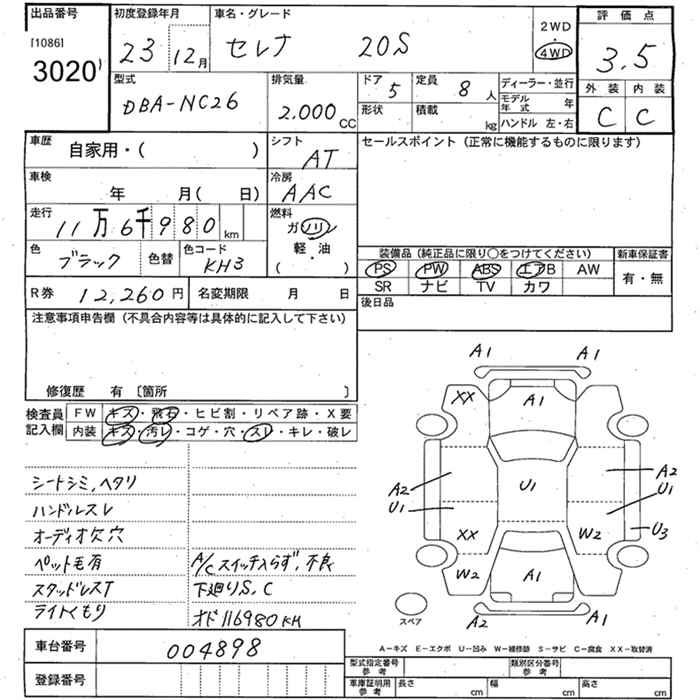 出品番号 初度登録年月 車名・グレード 評価点
[1086] 3020 23 12月 セレナ 20S 2WD 4WD 3.5
型式 排気量 ドア 定員 ディーラー・並行 外装 内装
DBA-NC26 2.000cc 5 8人 モデル年式 年 C C
形状 積載 kg ハンドル 左・右
車歴 自家用・( ) シフト AT セールスポイント (正常に機能するものに限ります)
車検 年 月( 日) 冷房 AAC
走行 11万6千980km 燃料 ガソリン
軽・油
( )
色 ブラック 色替 色コード KH3
装備品 (純正品に限り○をつけてください) 新車保証書
PS PW ABS エアB AW 有・無
SR ナビ TV カワ
R券 12,260円 名変期限 月 日 後日品
注意事項申告欄 (不具合内容等は具体的に記入して下さい)
修復歴 有 〔箇所 〕
検査員記入欄 FW キズ・飛石・ヒビ割・リペア跡・X要
内装 キズ・汚レ・コゲ・穴・スレ・キレ・破レ
シートシミ,ヘタリ
ハンドルスレ
オーディオ欠穴
ペット毛有 A/Cスイッチ入らず,不良
スタッドレスT 下廻りS,C
ライトくもり オド116980KM
A1 A1
XX A1
A2 U1 U1 A2 U1
XX W2 U3
W2 A1
A2 A1
スペア
A-キズ E-エクボ U-凹み W-補修跡 S-サビ C-腐食 XX-取替済
車台番号 004898
登録番号
型式指定番号 参考 類別区分番号 参考
車庫証明用 参考 長さ cm 幅 cm 高さ cm